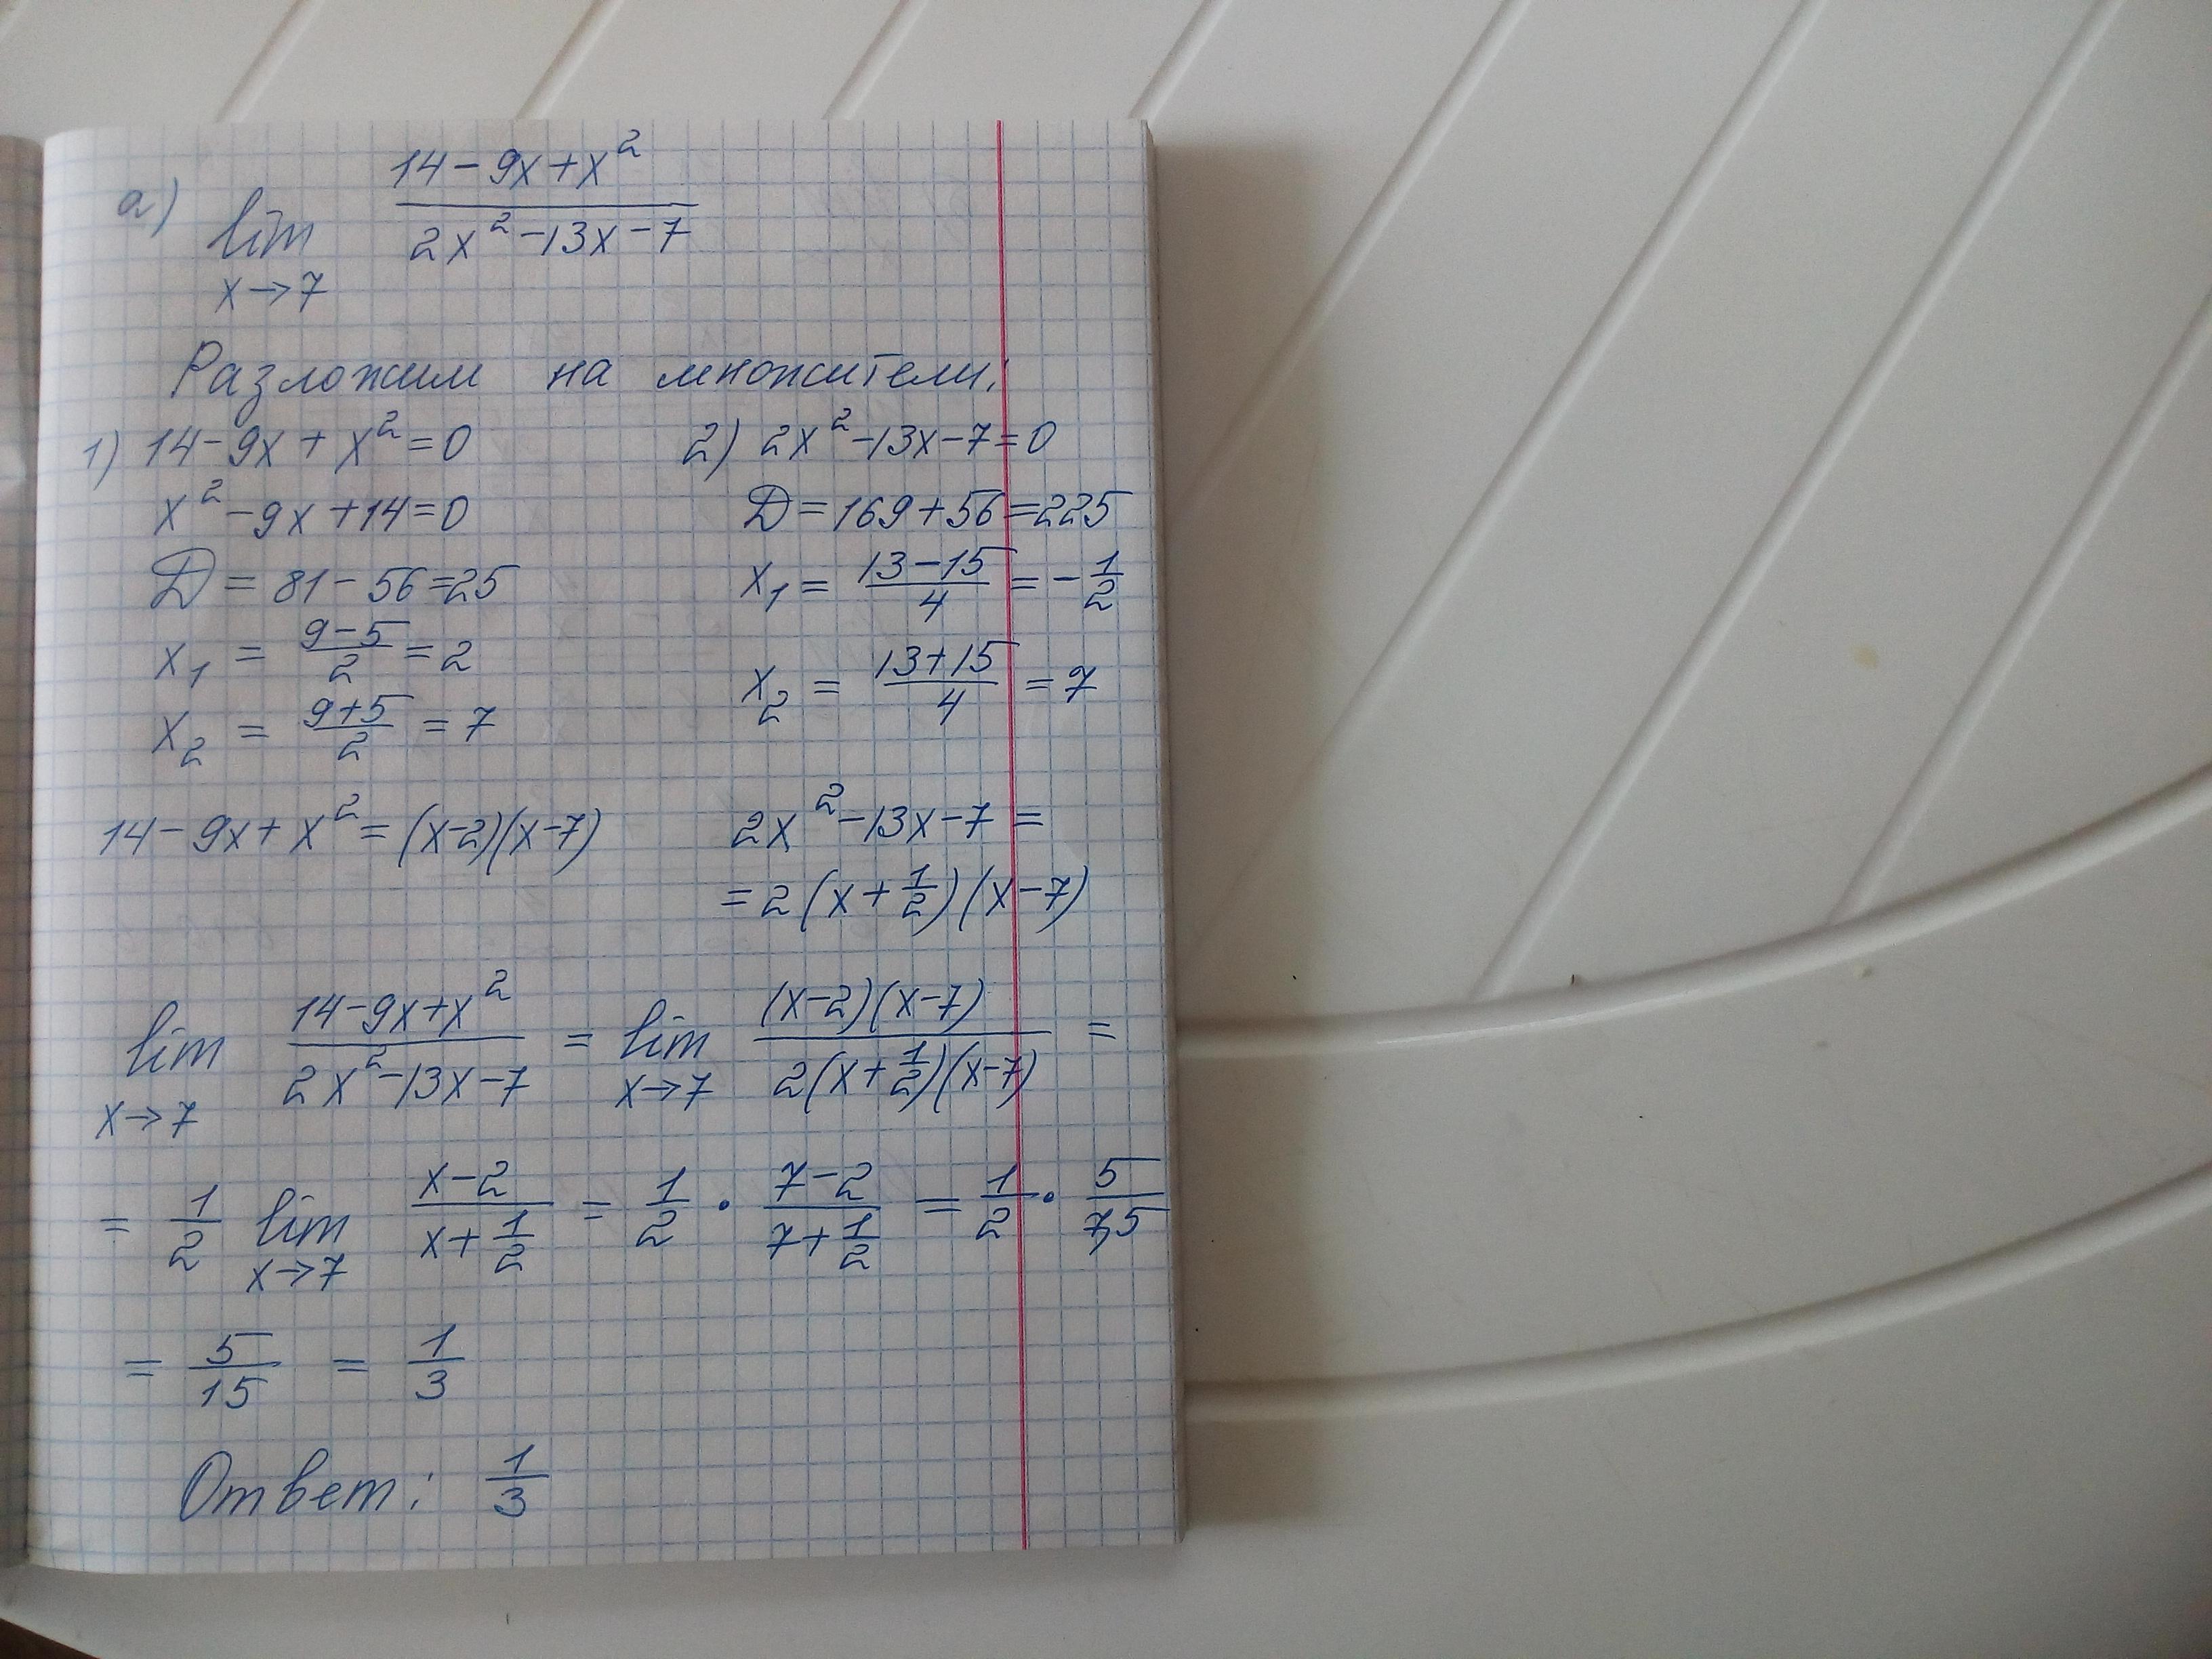 а) lim x→7 (14-9x+x²)/(2x²-13x-7)
Разложим на множители:
1) 14-9x+x²=0
x²-9x+14=0
D=81-56=25
x₁ = (9-5)/2 = 2
x₂ = (9+5)/2 = 7
14-9x+x²=(x-2)(x-7)
2) 2x²-13x-7=0
D=169+56=225
x₁ = (13-15)/4 = -1/2
x₂ = (13+15)/4 = 7
2x²-13x-7=
=2(x+1/2)(x-7)
lim x→7 (14-9x+x²)/(2x²-13x-7) = lim x→7 ((x-2)(x-7))/(2(x+1/2)(x-7)) =
= 1/2 lim x→7 (x-2)/(x+1/2) = 1/2 · (7-2)/(7+1/2) = 1/2 · 5/7,5
= 5/15 = 1/3
Ответ: 1/3